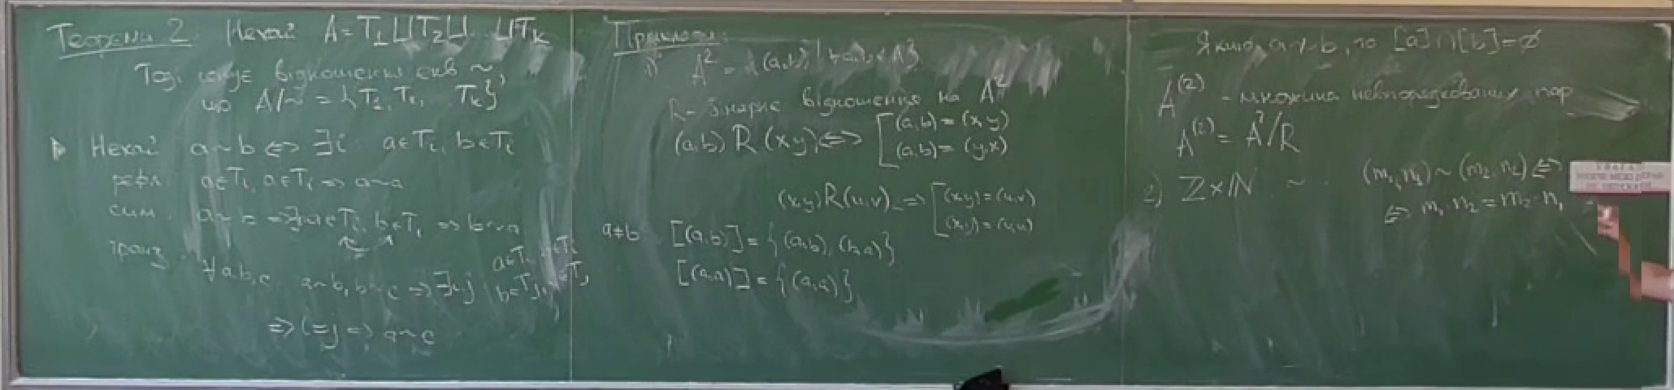 Теорема 2. Нехай A = T₁ ⊔ T₂ ⊔ ... ⊔ Tₖ
Тоді існує відношення екв ~,
що A/~ = {T₁, T₂, ... Tₖ}
Нехай a ~ b ⇔ ∃i: a∈Tᵢ, b∈Tᵢ
рефл. a∈Tᵢ, a∈Tᵢ ⇒ a~a
сим. a~b ⇒ ∃i a∈Tᵢ, b∈Tᵢ ⇒ b~a
транз. ∀a,b,c a~b, b~c ⇒ ∃i,j
⇒ i=j ⇒ a~c
Приклади:
1) A² = {(a,b) | a,b∈A}
R - бінарне відношення на A²
(a,b) R (x,y) ⇔ [ (a,b) = (x,y)
(a,b) = (y,x)
(x,y) R (u,v) ⇒ [ (x,y) = (u,v)
(x,y) = (v,u)
a≠b [(a,b)] = {(a,b), (b,a)}
[(a,a)] = {(a,a)}
Якщо a≁b, то [a]∩[b]=∅
A⁽²⁾ - множина невпорядкованих пар
A⁽²⁾ = A²/R
2) ℤ×ℕ ~ (m₁,n₁) ~ (m₂,n₂) ⇔
⇔ m₁·n₂ = m₂·n₁